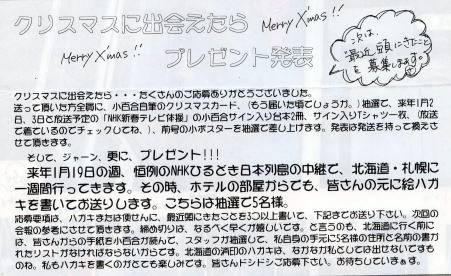 クリスマスに出会えたら
Merry X'mas!!
Merry X'mas!!
プレゼント発表
次は、
最近頭にきたこと
を募集します。
クリスマスに出会えたら・・・たくさんのご応募ありがとうございました。
送って頂いた方全員に、小百合自筆のクリスマスカード、(もう届いた頃でしょうか。)抽選で、来年1月2
日、3日と放送予定の「NHK新春テレビ体操」の小百合サイン入り台本2冊、サイン入りTシャツ一枚、(放送
で着ているのでチェックしてね。)、前号の小ポスターを抽選で差し上げます。発表は発送を持って換えさ
せて頂きます。
そして、ジャーン、更に、プレゼント!!!
来年1月19日の週、恒例のNHKひるどき日本列島の中継で、北海道・札幌に
一週間行ってきます。その時、ホテルの部屋からでも、皆さんの元に絵ハガ
キを書いてお送りします。こちらは抽選で5名様。
応募要項は、ハガキまたは便せんに、最近頭にきたことを3つ以上書いて、下記までお送り下さい。次回の
会報の参考にさせて頂きます。締め切りは、なるべく早くが嬉しいです。と言うのも、北海道に行く前に
は、皆さんからの手紙を小百合が読んで、スタッフが抽選して、私自身の手元に5名様の住所と名前の書か
れたリストがなければならないからです。北海道の消印のハガキは、なかなか私としては出せないですも
のね。私もハガキを書くのがとても楽しみです。皆さんドシドシご応募下さい。お待ちしていまぁす。